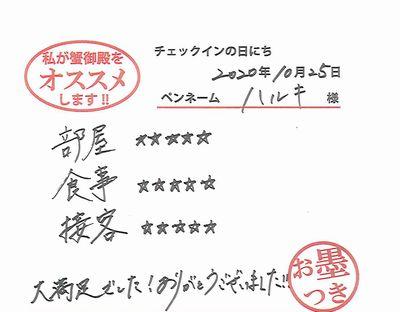 私が蟹御殿を
オススメ
します!!
チェックインの日にち
2020年10月25日
ペンネーム ハルキ 様
部屋 ★★★★★
食事 ★★★★★
接客 ★★★★★
大満足でした!ありがとうございました!!
お墨
つき